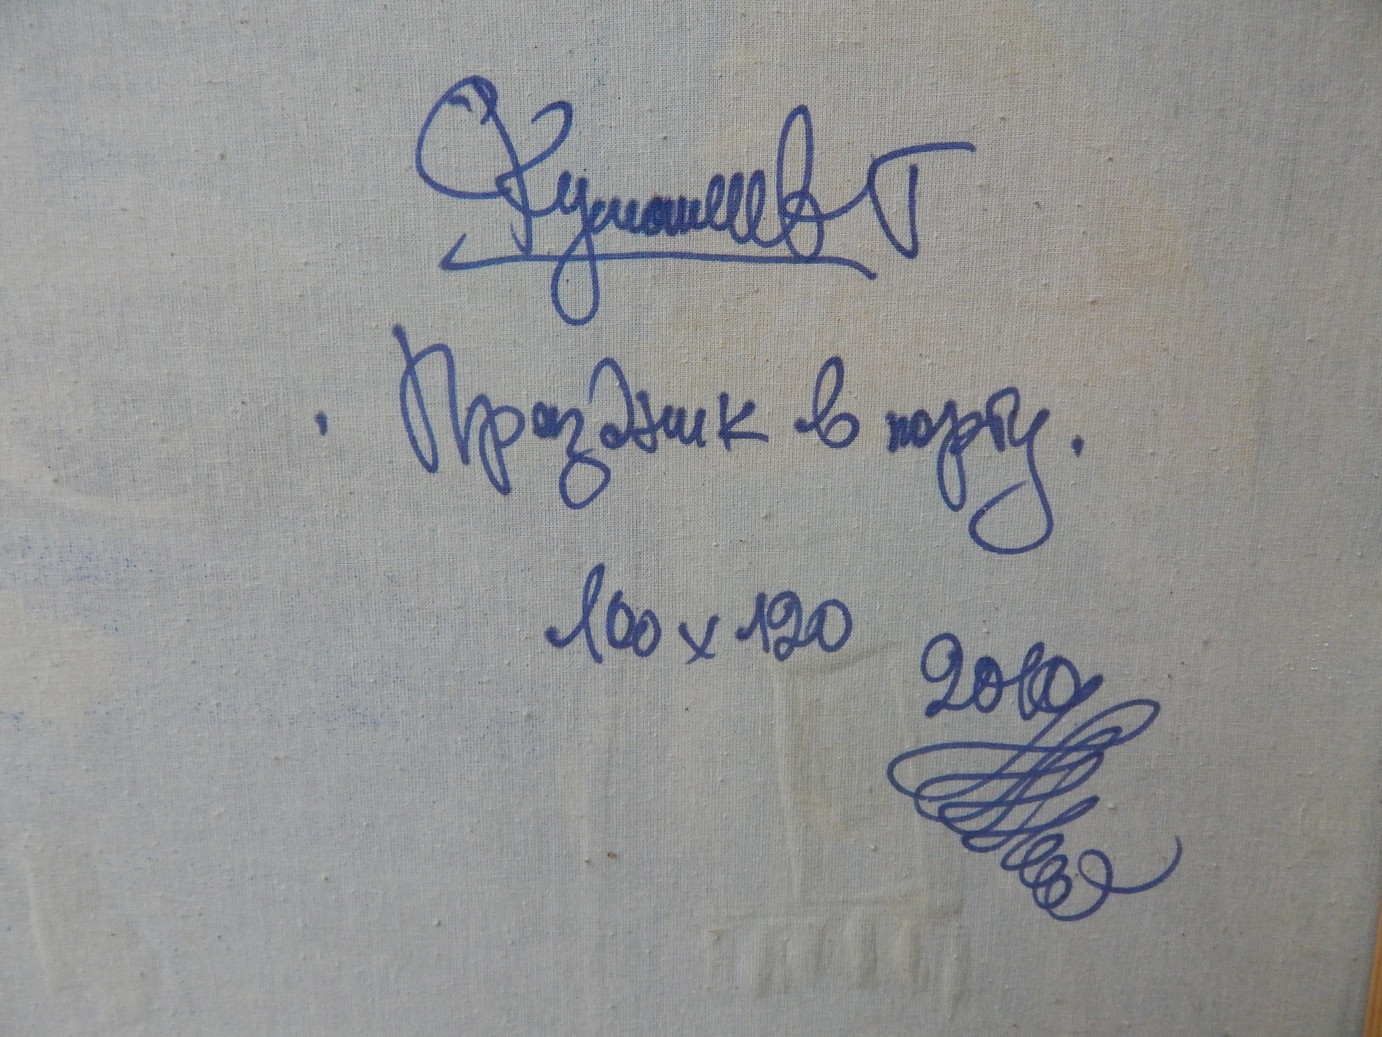 Г
Праздник в порту.
100 х 120
2010